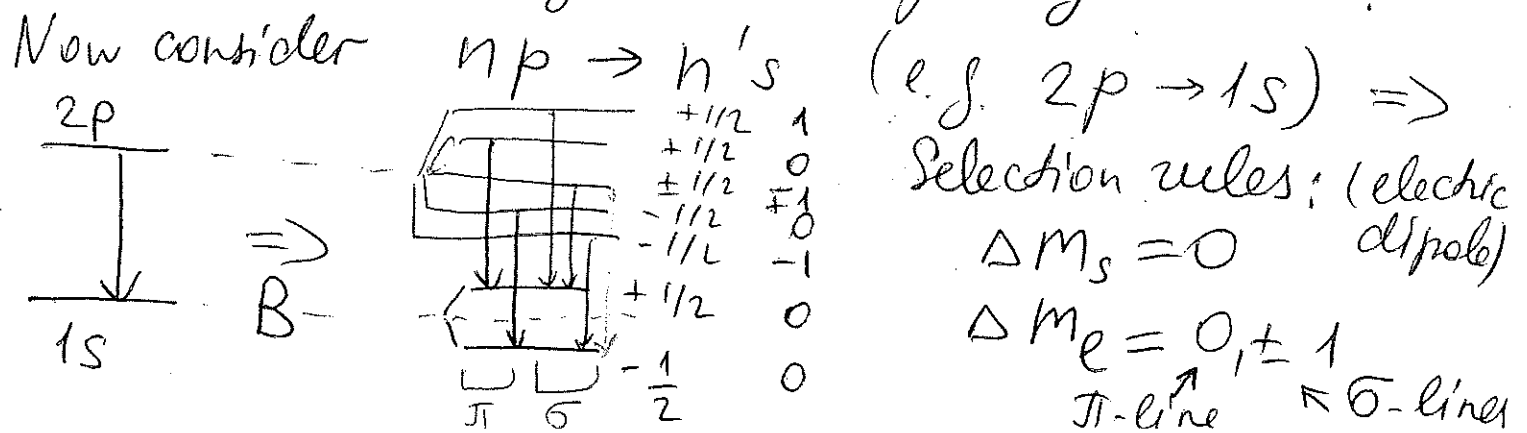 Now consider np → n's (e.g. 2p → 1s) =>
2p
+1/2 1
+1/2 0
±1/2 ∓1
-1/2 0
-1/2 -1
+1/2 0
-1/2 0
=>
B
1s
π σ
Selection rules: (electric dipole)
Δm_s = 0
Δm_e = 0, ± 1
π-line σ-lines